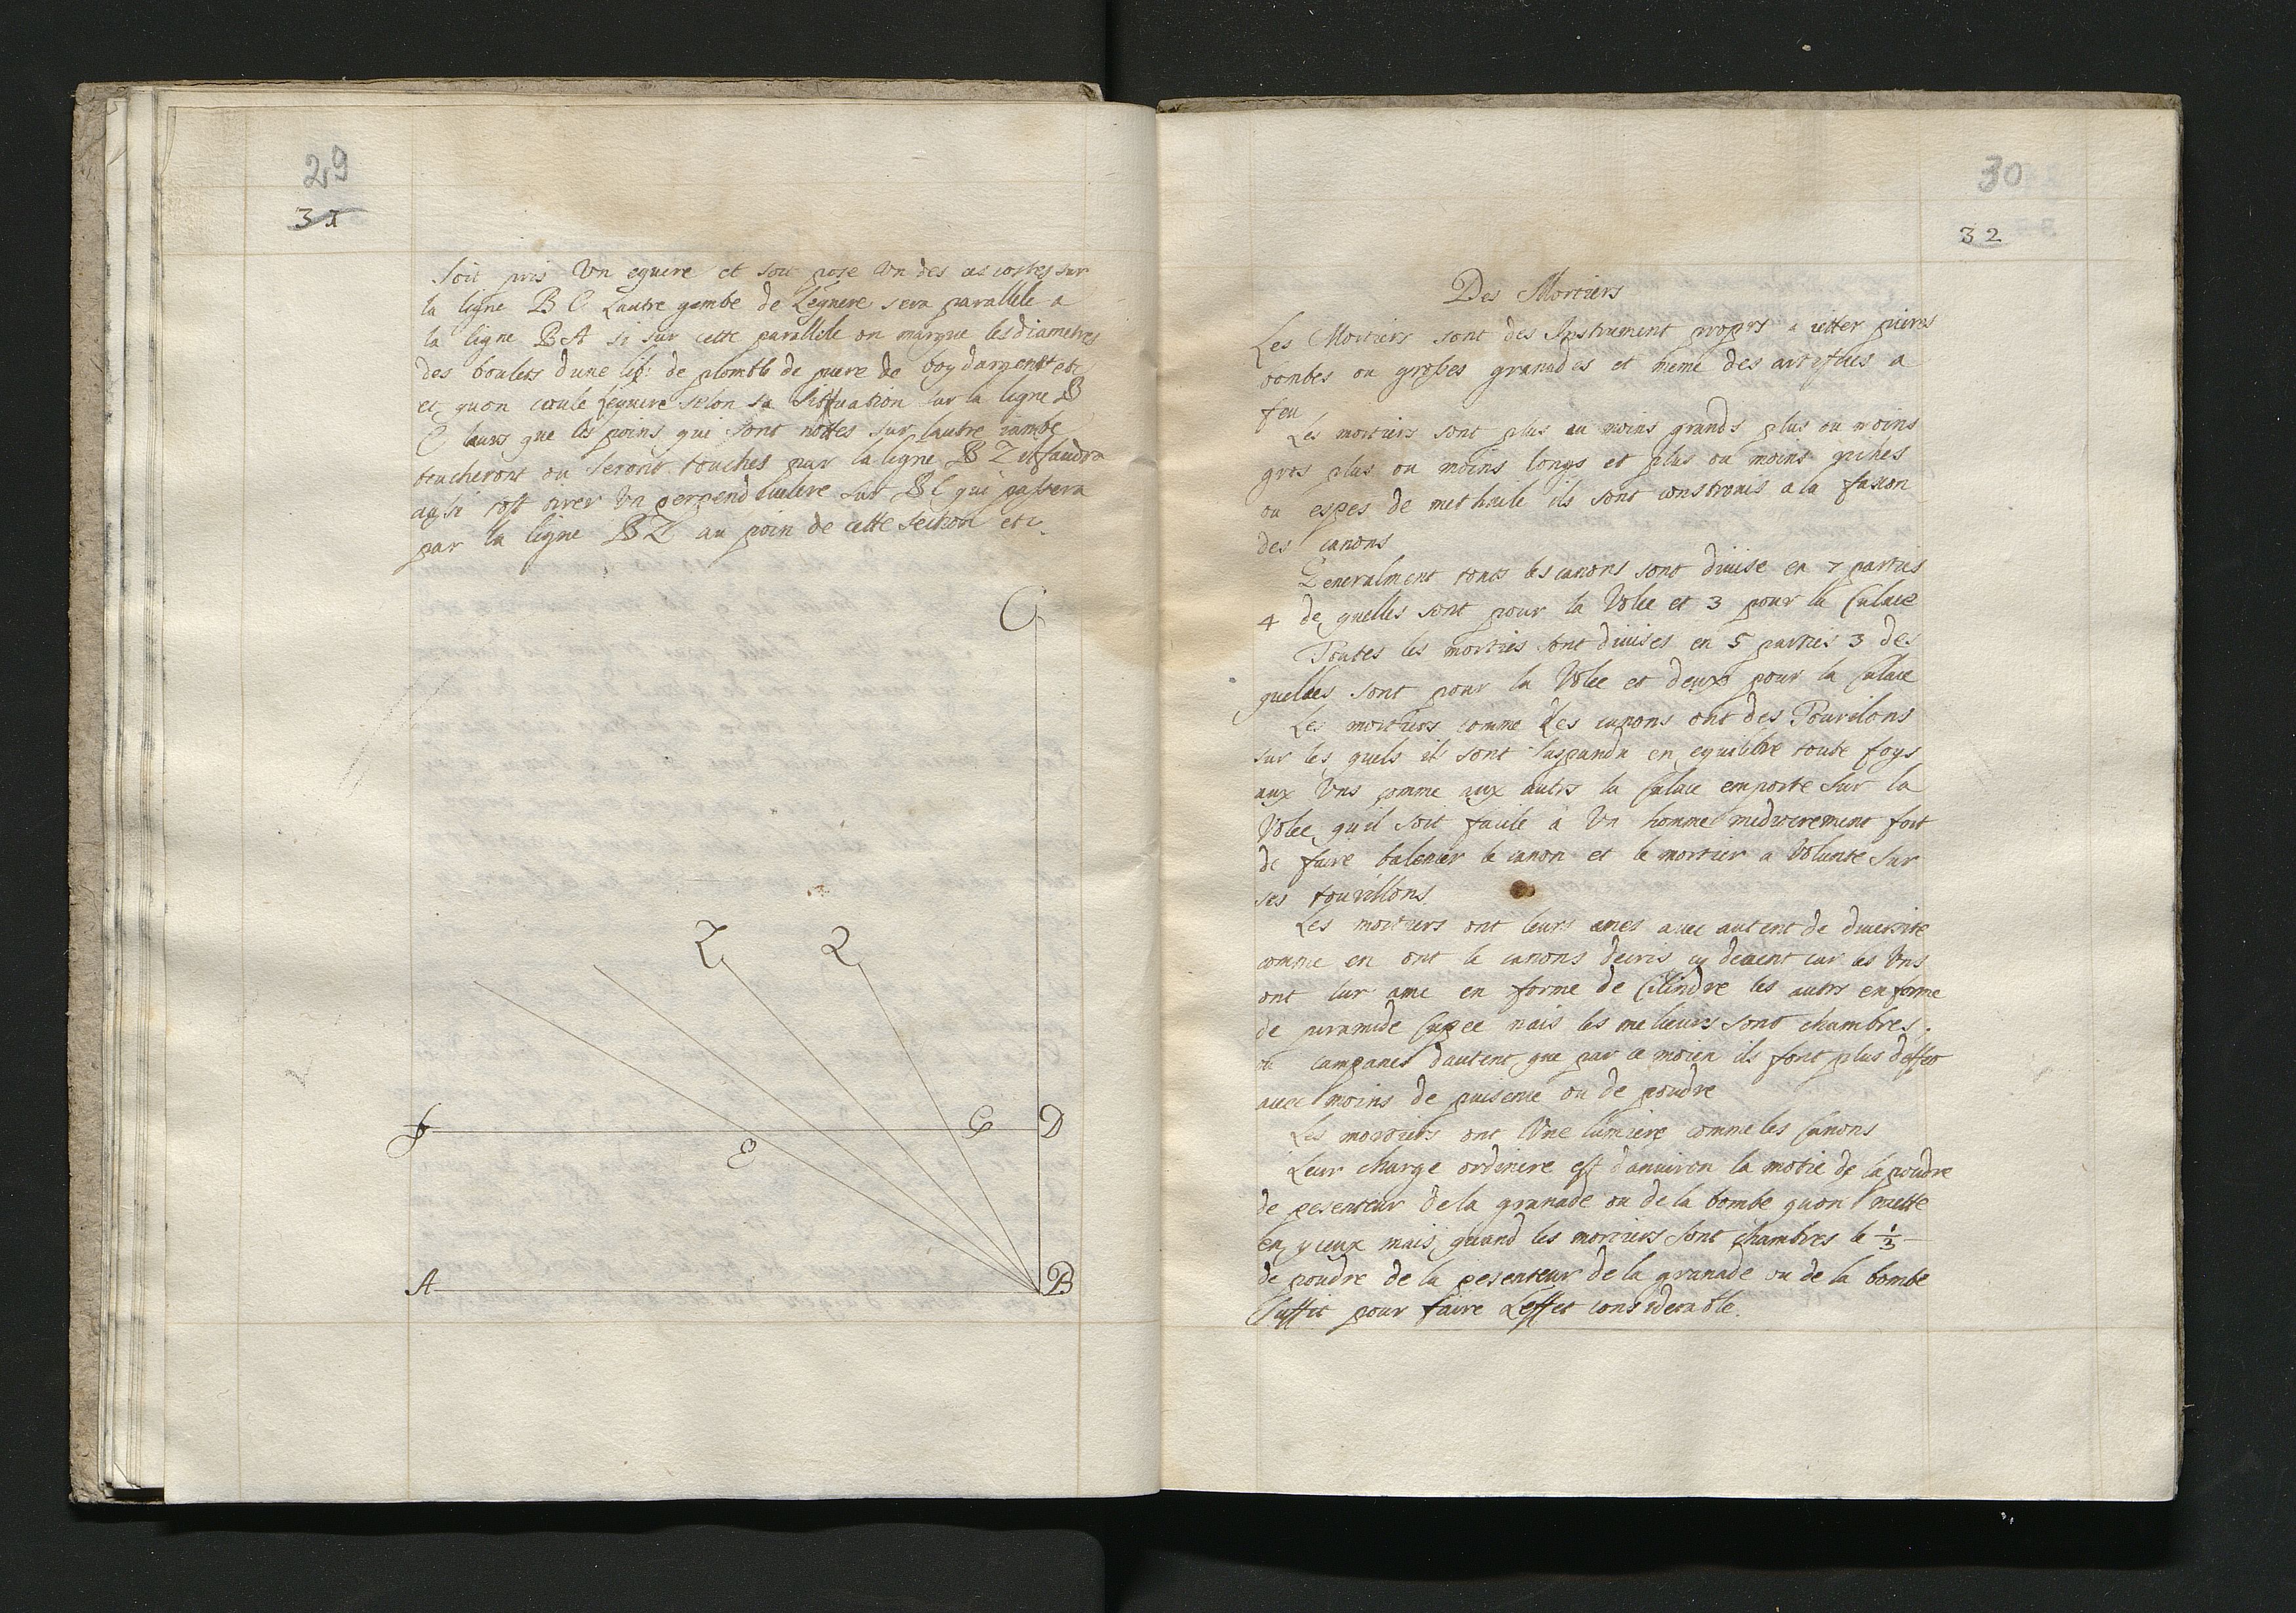 29
31
Soit pris Vn equere et soit pose Vn des ces costes sur
la ligne B C Lautre gembe de Lequere sera parallele a
la ligne BA si sur cette parallele on marque les diametres
des boulets dune lib: de plomb de piere de boy dargent etc
et quon coule Lequere selon sa sittuation sur la ligne B
C leurs que les poins qui sont nottes sur lautre iambe
toucheront ou seront touches par la ligne BZ il faudra
ausi tost tirer Vn perpendiculere sur BC qui passera
par la ligne BZ au poin de cette section etc.
C
Z 2
F G D
E
A B
30
32
Des Mortiers
Les Mortiers sont des Instrument proprs a ietter pieres
bombes ou grosses granades et meme des artifices a
feu
Les mortiers sont plus ou moins grands plus ou moins
gros plus ou moins longs et plus ou moins riches
ou espes de methaile ils sont construis a la faxon
des canons
Generalment touts les canons sont diuise en 7 parties
4 de quelles sont pour la Volee et 3 pour la Culace
Toutes les morties sont diuises en 5 parties 3 des
quelles sont pour la Volee et deux pour la Culace
Les mortiers comme les canons ont des Tourilons
sur les quels ils sont suspandu en equilibre toute foys
aux Vns comme aux autrs la Culace emporte sur la
Volee quil soit facile a Vn homme mediocrement fort
de faire balencer le canon et le mortier a Volunte sur
ses tourillons
Les mortiers ont leurs ames auec autent de diuersite
comme en ont le canons decris cy deuent car les Vns
ont lur ame en forme de Cilindre les autrs en forme
de piramide Cupee mais les melieurs sont chambres.
ou campanes dautent que par ce moien ils font plus deffet
auec moins de puisence ou de poudre
Les mortiers ont Vne lumiere comme les Canons
Leur charge ordinere est danuiron la motie de la poudre
de pesenteur de la granade ou de la bombe quon mette
en yceux mais quand les mortiers sont chambres le 1/3
de poudre de la pesenteur de la granade ou de la bombe
suffit pour faire Leffet considerable.